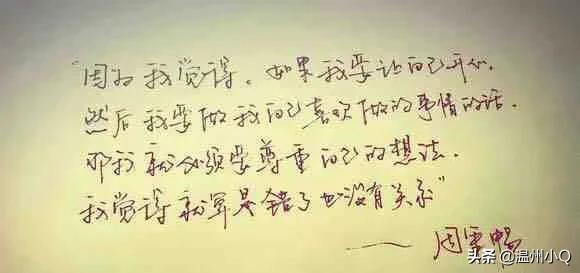 “因为我觉得，如果我要让自己开心，
然后我要做我自己喜欢做的事情的话，
那我就必须要尊重自己的想法，
我觉得就算是错了也没有关系”
——周笔畅
头条 @温州小Q